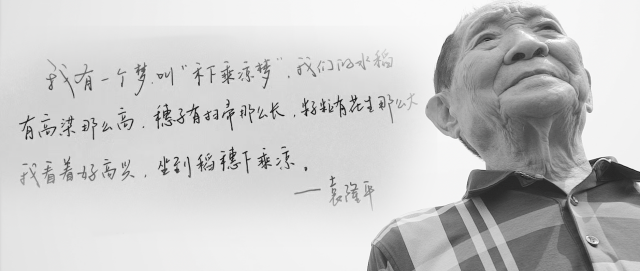 我有一个梦,叫“禾下乘凉梦”,我们的水稻
有高粱那么高,穗子有扫帚那么长,籽粒有花生那么大
我看着好高兴,坐到稻穗下乘凉。
——袁隆平